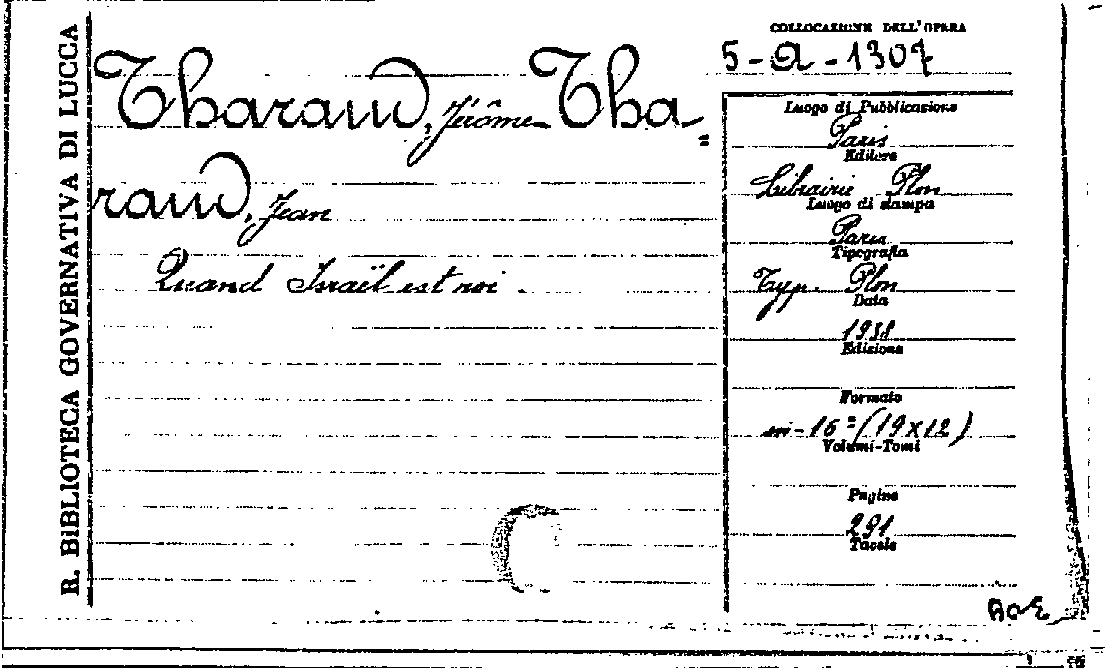 R. BIBLIOTECA GOVERNATIVA DI LUCCA
Tharaud, Jérôme Tha-
raud, Jean
Quand Israël est roi.
COLLOCAZIONE DELL'OPERA
5-A-1307
Luogo di Pubblicazione
Paris
Editore
Librairie Plon
Luogo di stampa
Paris
Tipografia
Typ. Plon
Data
Edizione
Formato
in-16° (19x12)
Volumi-Tomi
Pagine
291
Tavole